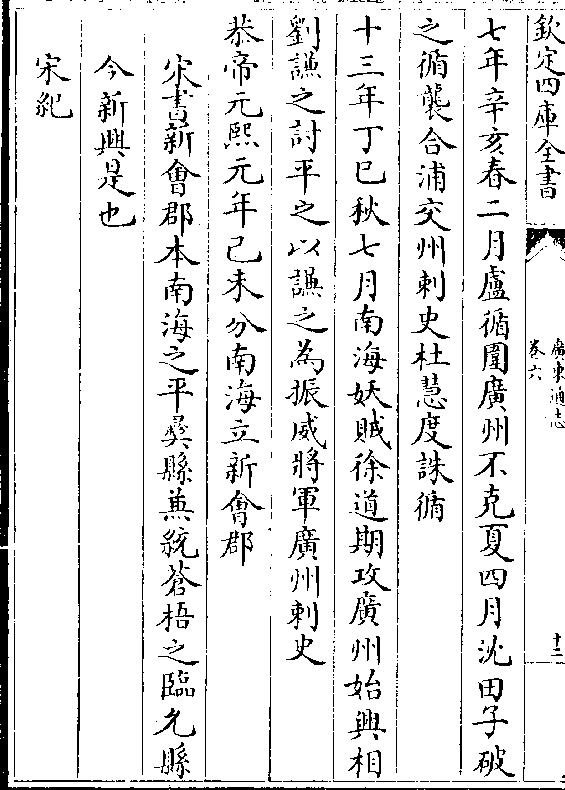 欽定四庫全書
廣東通志
卷六
十二
七年辛亥春二月盧循圍廣州不克夏四月沈田子破
之循襲合浦交州刺史杜慧度誅循
十三年丁巳秋七月南海妖賊徐道期攻廣州始興相
劉謙之討平之以謙之為振威將軍廣州刺史
恭帝元熙元年己未分南海立新會郡
宋書新會郡本南海之平彛縣兼統蒼梧之臨允縣
今新興是也
宋紀